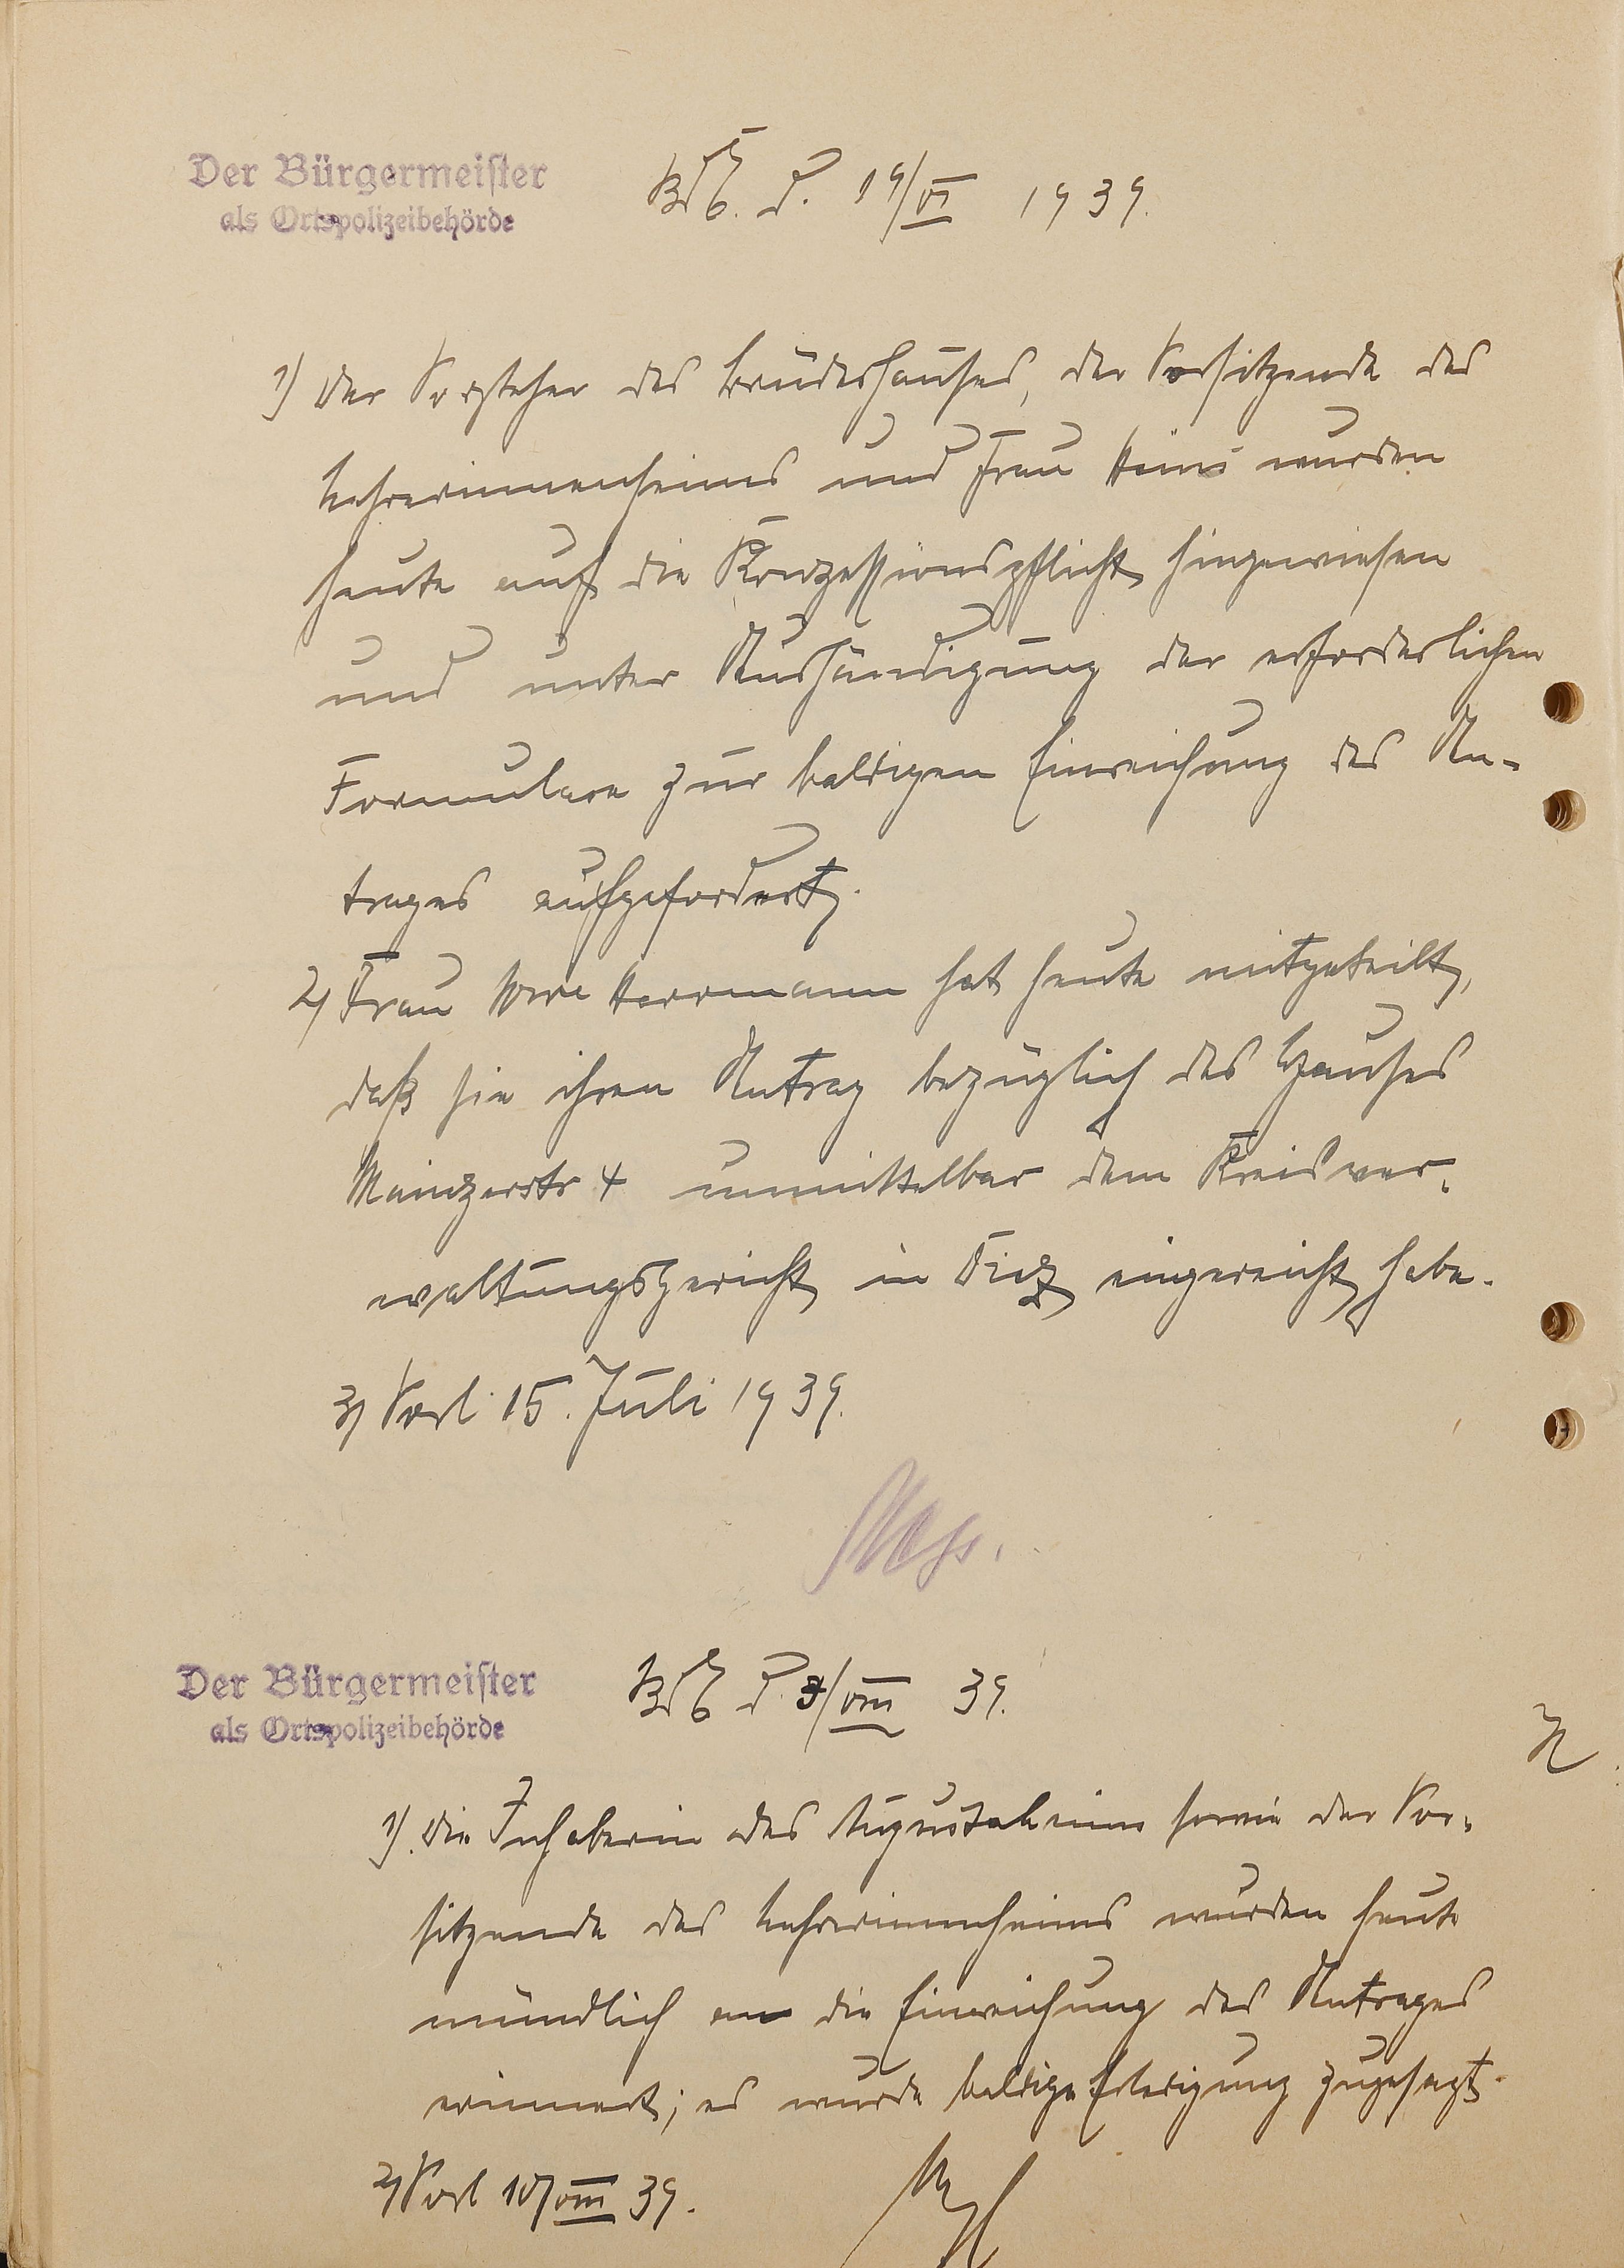 Der Bürgermeister
als Ortspolizeibehörde
d. 19/VI 1939.
1) Der Vorsteher des Brüderhauses, der Vorsitzende des
Lehrerinnenheims und Frau Heins wurden
heute auf die Konzessionspflicht hingewiesen
und unter Aushändigung der erforderlichen
Formulare zur baldigen Einreichung des An-
trages aufgefordert.
2) Frau Wwe Herrmann hat heute mitgeteilt,
daß sie ihren Antrag bezüglich des Hauses
Mainzerstr 4 unmittelbar dem Kreisver-
waltungsgericht in Diez eingereicht habe.
3) Vorl. 15. Juli 1939.
Der Bürgermeister
als Ortspolizeibehörde
d. /VIII 39.
1) Die Inhaberin des Augustaheims sowie der Vor-
sitzende des Lehrerinnenheims wurden heute
mündlich an die Einreichung des Antrages
erinnert; es wurde baldige Erledigung zugesagt.
2) Vorl 10/VIII 39.